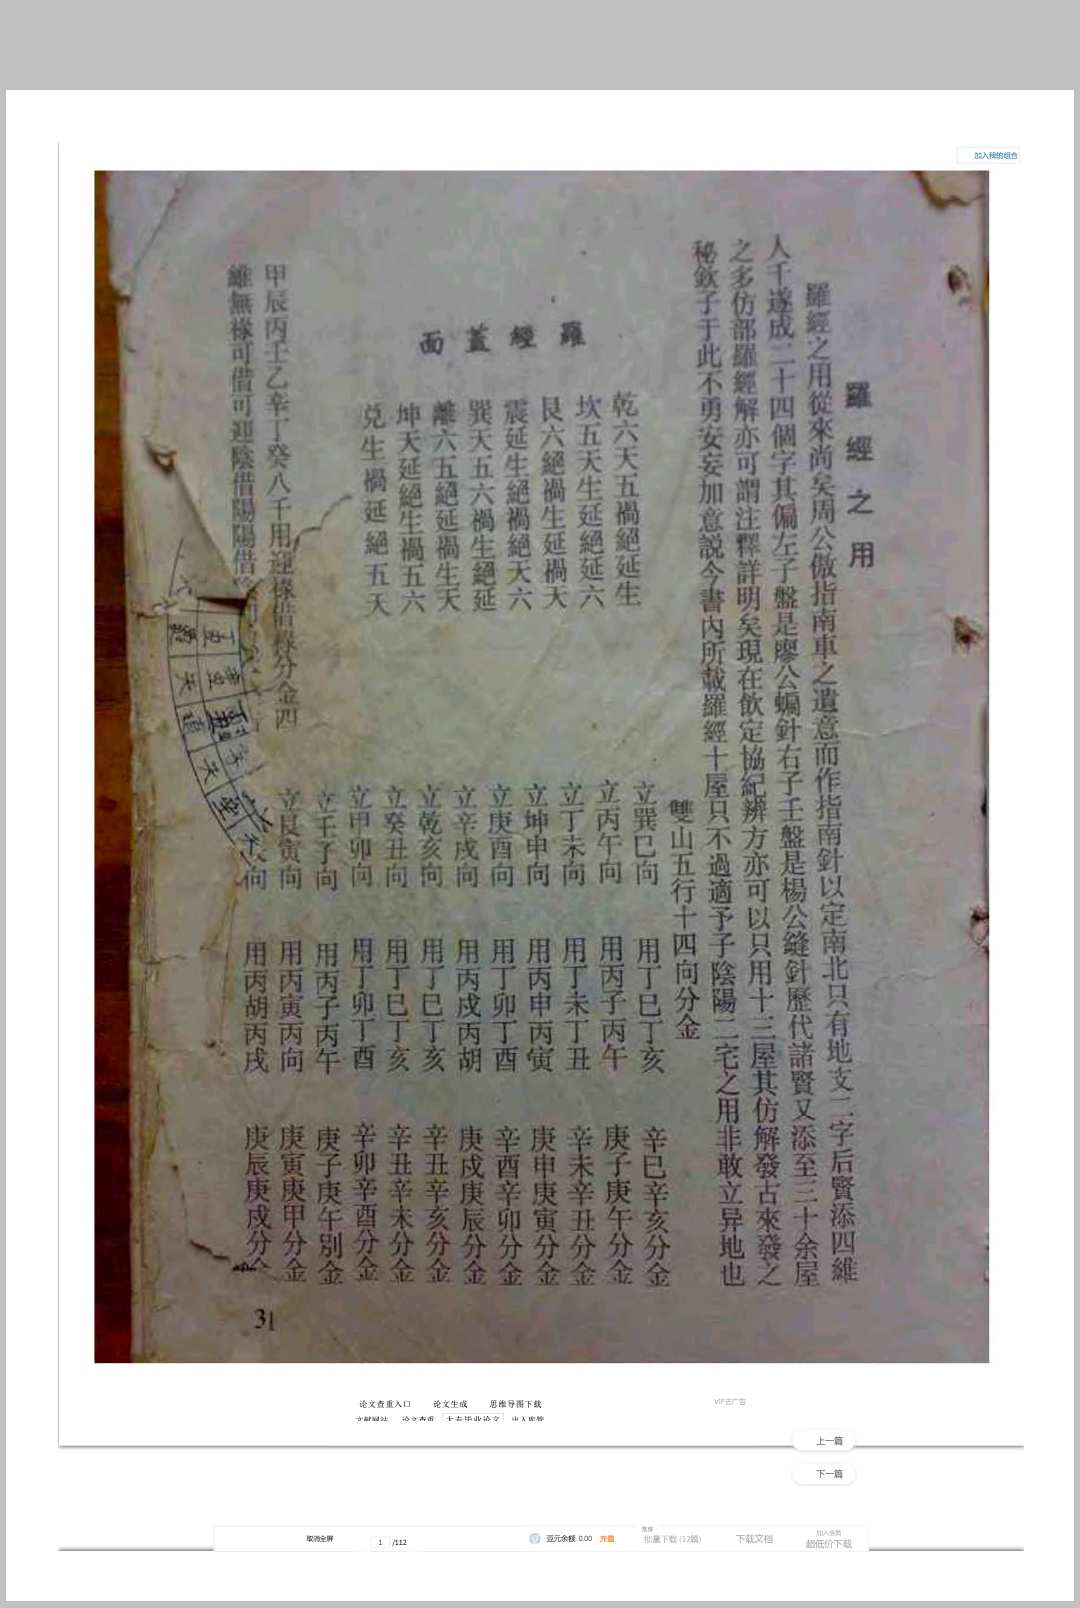 加入我的组合
羅經之用
羅經之用從來尚矣周公倣指南車之遺意而作指南針以定南北只有地支二字后賢添四維
人千遂成二十四個字其偏左子盤是廖公蝙針右子壬盤是楊公縫針歷代諸賢又添至三十余屋
之多仿部羅經解亦可謂注釋詳明矣現在飲定協紀辨方亦可以只用十三屋其仿解發古來發之
秘欽子于此不勇安妄加意説今書內所載羅經十屋只不過適予子陰陽二宅之用非敢立异地也
雙山五行十四向分金
羅經蓋面
乾六天五禍絕延生
坎五天生延絕延六
艮六絕禍生延禍天
震延生絕禍絕天六
巽天五六禍生絕延
離六五絕延禍生天
坤天延絕生禍五六
兑生禍延絕五天
立巽巳向 用丁巳丁亥 辛巳辛亥分金
立丙午向 用丙子丙午 庚子庚午分金
立丁未向 用丁未丁丑 辛未辛丑分金
立坤申向 用丙申丙寅 庚申庚寅分金
立庚酉向 用丁卯丁酉 辛酉辛卯分金
立辛戌向 用丙戌丙胡 庚戌庚辰分金
立乾亥向 用丁巳丁亥 辛丑辛亥分金
立癸丑向 用丁巳丁亥 辛丑辛未分金
立甲卯向 用丁卯丁酉 辛卯辛酉分金
立壬子向 用丙子丙午 庚子庚午別金
立艮寅向 用丙寅丙向 庚寅庚甲分金
向 用丙胡丙戌 庚辰庚戌分
甲辰丙壬乙辛丁癸八千用迎祿借祿分金四
維無祿可借可迎陰借陽陽借
31
论文查重入口 论文生成 思维导图下载
VIP去广告
上一篇
下一篇
取消全屏 1 /112 豆元余额 0.00 充值 批量下载 (12篇) 下载文档 加入会员
超低价下载